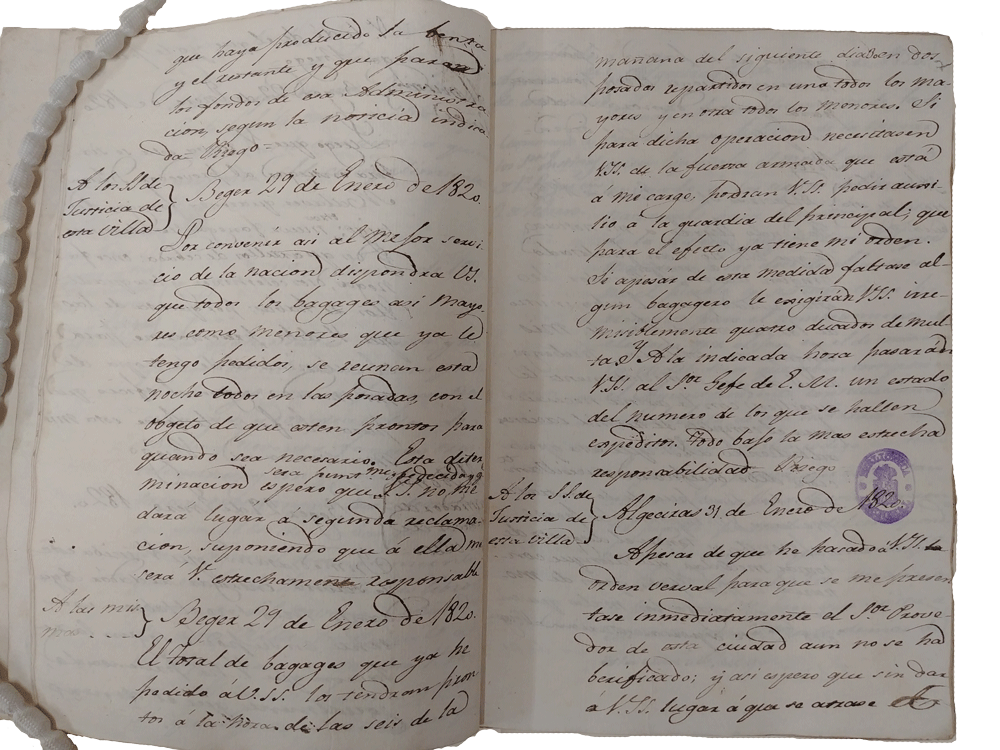 que haya producido la benta
y el restante y que paran
los fondos de esa Administra
cion, segun la noticia indica
da Riego=
A los SS. de
Justicia de
esta villa
Beger 29 de Enero de 1820.
Por convenir asi al mejor servi
cio de la nacion dispondra VS.
que todos los bagages asi mayo
res como menores que ya le
tengo pedidos, se reunan esta
noche todos en las posadas, con el
obgeto de que esten prontos para
quando sea necesario. Esta diter
sera punt.
minacion espero que no me
dara lugar á segunda reclama-
cion, suponiendo que á ella me
será V. estrechamente responsable
A las mis
Beger 29 de Enero de 1820.
El Total de bagages que ya he
pedido á V.SS. los tendran pron
tos á la hora de las seis de la
mañana del siguiente dia en dos
posadas repartidos en una todos los ma-
yores y en otra todos los menores. Si
para dicha operacion necesitasen
V.SS. de la fuerza armada que está
á mi cargo, podran V.SS. pedir ausi-
lio á la guardia del principal; que
para el efecto ya tiene mi orden.
Si apesár de esta medida faltase al-
gun bagagero le esigirán V.SS. irre-
misiblemente quatro ducados de mul-
ta. Y A la indicada hora pasarán
V.SS. al Sor. Gefe de E. M. un estado
del numero de los que se hallen
espeditos. Todo bajo la mas estrecha
responsabilidad Riego
A los SS. de
Justicia de
esta villa
Algeciras 31 de Enero de 1820
Apesar de que he pasado á V.SS. la
orden verval para que se me presen
tase inmediatamente el Sor. Prove-
dor de esta ciudad aun no se ha
berificado; y asi espero que sin dar
á V.SS. lugar á que se atrase